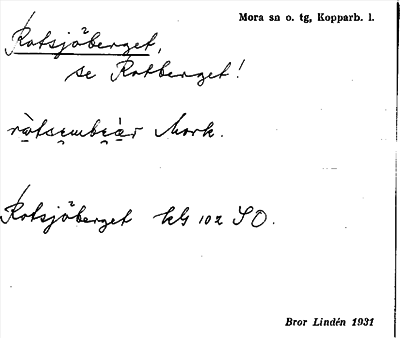 Mora sn o. tg, Kopparb. l.
Rotsjöberget,
se Rotberget!
ràtsembeàr Mork.
Rotsjöberget kG 102 SO.
Bror Lindén 1931